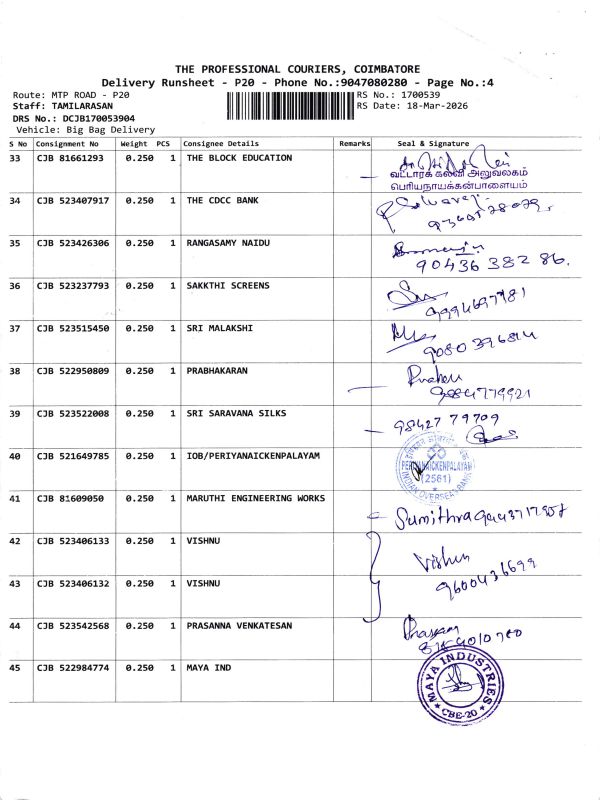 THE PROFESSIONAL COURIERS, COIMBATORE
Delivery Runsheet - P20 - Phone No.:9047080280 - Page No.:4
Route: MTP ROAD - P20 RS No.: 1700539
Staff: TAMILARASAN RS Date: 18-Mar-2026
DRS No.: DCJB170053904
Vehicle: Big Bag Delivery
S No Consignment No Weight PCS Consignee Details Remarks Seal & Signature
33 CJB 81661293 0.250 1 THE BLOCK EDUCATION
வட்டாரக் கல்வி அலுவலகம்
பெரியநாயக்கன்பாளையம்
34 CJB 523407917 0.250 1 THE CDCC BANK
35 CJB 523426306 0.250 1 RANGASAMY NAIDU
90436 382 86.
36 CJB 523237793 0.250 1 SAKKTHI SCREENS
9994697981
37 CJB 523515450 0.250 1 SRI MALAKSHI
9080396814
38 CJB 522950809 0.250 1 PRABHAKARAN
9884779921
39 CJB 523522008 0.250 1 SRI SARAVANA SILKS
98427 79709
40 CJB 521649785 0.250 1 IOB/PERIYANAICKENPALAYAM
PERIYANAICKENPALAYAM
(2561)
INDIAN OVERSEAS BANK
41 CJB 81609050 0.250 1 MARUTHI ENGINEERING WORKS
Sumithra
42 CJB 523406133 0.250 1 VISHNU
Vishnu
9600436699
43 CJB 523406132 0.250 1 VISHNU
44 CJB 523542568 0.250 1 PRASANNA VENKATESAN
45 CJB 522984774 0.250 1 MAYA IND
MAYA INDUSTRIES
CBE-20